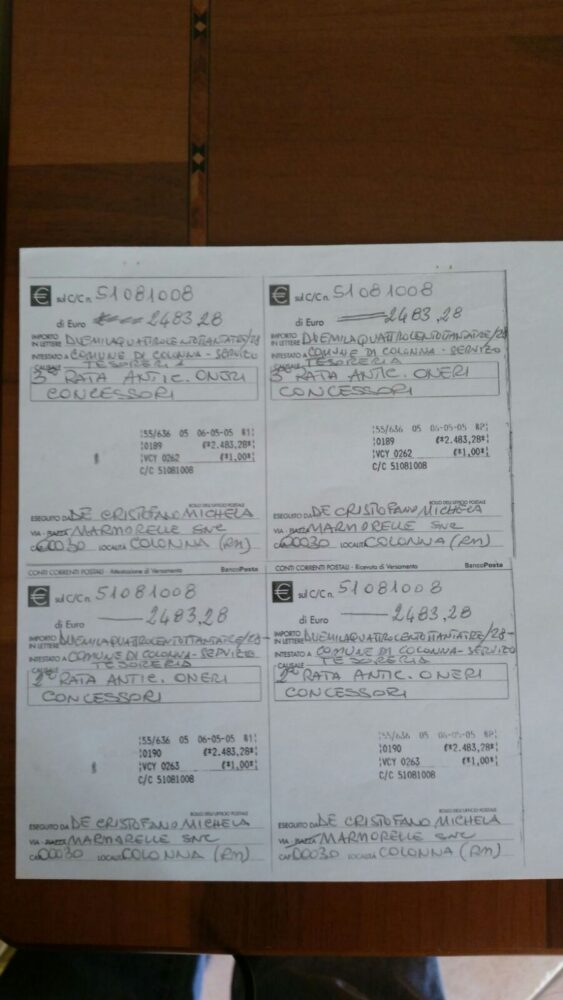 € sul C/C n. 51081008
di Euro 2483,28
IMPORTO IN LETTERE DUEMILAQUATTROCENTOTTANTATRE/28
INTESTATO A COMUNE DI COLONNA - SERVIZO
CAUSALE TESORERIA
3° RATA ANTIC. ONERI
CONCESSORI
55/636 05 06-05-05 R1
0189 €*2.483,28*
VCY 0262 €*1,00*
C/C 51081008
BOLLO DELL'UFFICIO POSTALE
ESEGUITO DA DE CRISTOFANO MICHELA
VIA - PIAZZA MARMORELLE SNC
CAP 00030 LOCALITÀ COLONNA (RM)
€ sul C/C n. 51081008
di Euro 2483,28
IMPORTO IN LETTERE DUEMILAQUATTROCENTOTTANTATRE/28
INTESTATO A COMUNE DI COLONNA - SERVIZO
CAUSALE TESORERIA
3° RATA ANTIC. ONERI
CONCESSORI
55/636 05 06-05-05 RP
0189 €*2.483,28*
VCY 0262 €*1,00*
C/C 51081008
BOLLO DELL'UFFICIO POSTALE
ESEGUITO DA DE CRISTOFANO MICHELA
VIA - PIAZZA MARMORELLE SNC
CAP 00030 LOCALITÀ COLONNA (RM)
CONTI CORRENTI POSTALI - Attestazione di Versamento BancoPosta
€ sul C/C n. 51081008
di Euro 2483,28
IMPORTO IN LETTERE DUEMILAQUATTROCENTOTTANTATRE/28-
INTESTATO A COMUNE DI COLONNA - SERVIZO
CAUSALE TESORERIA
2° RATA ANTIC. ONERI
CONCESSORI
55/636 05 06-05-05 R1
0190 €*2.483,28*
VCY 0263 €*1,00*
C/C 51081008
BOLLO DELL'UFFICIO POSTALE
ESEGUITO DA DE CRISTOFANO MICHELA
VIA - PIAZZA MARMORELLE SNC
CAP 00030 LOCALITÀ COLONNA (RM)
CONTI CORRENTI POSTALI - Ricevuta di Versamento BancoPosta
€ sul C/C n. 51081008
di Euro 2483,28
IMPORTO IN LETTERE DUEMILAQUATTROCENTOTTANTATRE/28-
INTESTATO A COMUNE DI COLONNA - SERVIZO
CAUSALE TESORERIA
2° RATA ANTIC. ONERI
CONCESSORI
55/636 05 06-05-05 RP
0190 €*2.483,28*
VCY 0263 €*1,00*
C/C 51081008
BOLLO DELL'UFFICIO POSTALE
ESEGUITO DA DE CRISTOFANO MICHELA
VIA - PIAZZA MARMORELLE SNC
CAP 00030 LOCALITÀ COLONNA (RM)